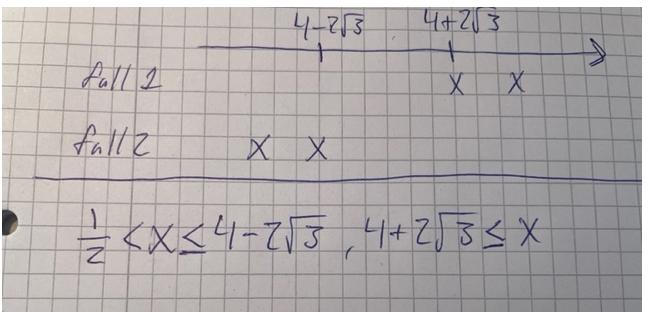 4-2√3 4+2√3
fall 1 x x
fall 2 x x
1/2 < x ≤ 4-2√3 , 4+2√3 ≤ x